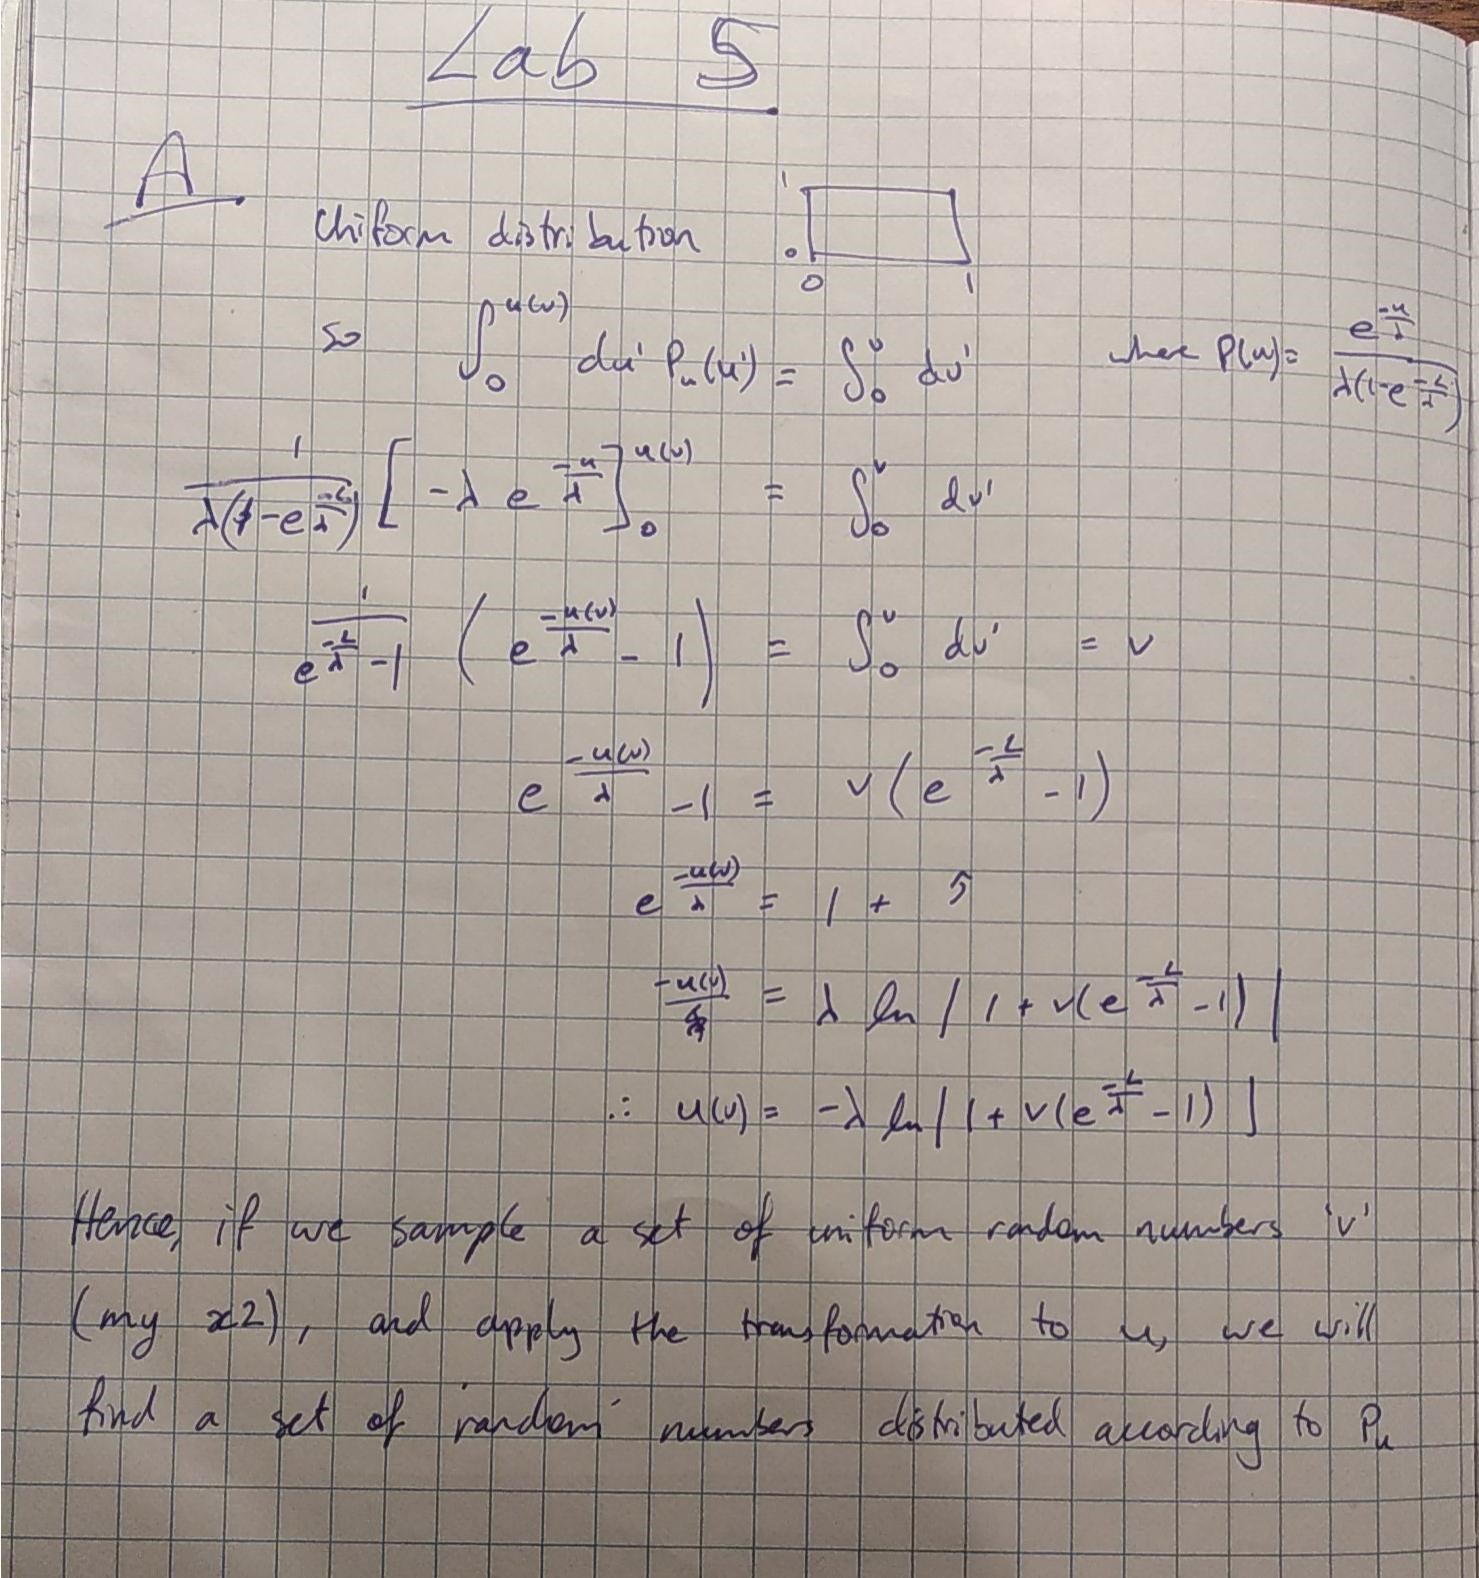 Lab 5
A
Uniform distribution 1 0 0 1
so ∫_0^{u(v)} du' P_u(u') = ∫_0^v dv' where P(u) = e^{-u/λ} / λ(1-e^{-L/λ})
1/λ(1-e^{-L/λ}) [-λ e^{-u/λ}]_0^{u(v)} = ∫_0^v dv'
1/(e^{-L/λ} -1) (e^{-u(v)/λ} - 1) = ∫_0^v dv' = v
e^{-u(v)/λ} -1 = v(e^{-L/λ} - 1)
e^{-u(v)/λ} = 1 +
-u(v) = λ ln | 1 + v(e^{-L/λ} -1) |
∴ u(v) = -λ ln | 1 + v(e^{-L/λ} - 1) |
Hence, if we sample a set of uniform random numbers 'v'
(my x2), and apply the transformation to u, we will
find a set of random numbers distributed according to P_u